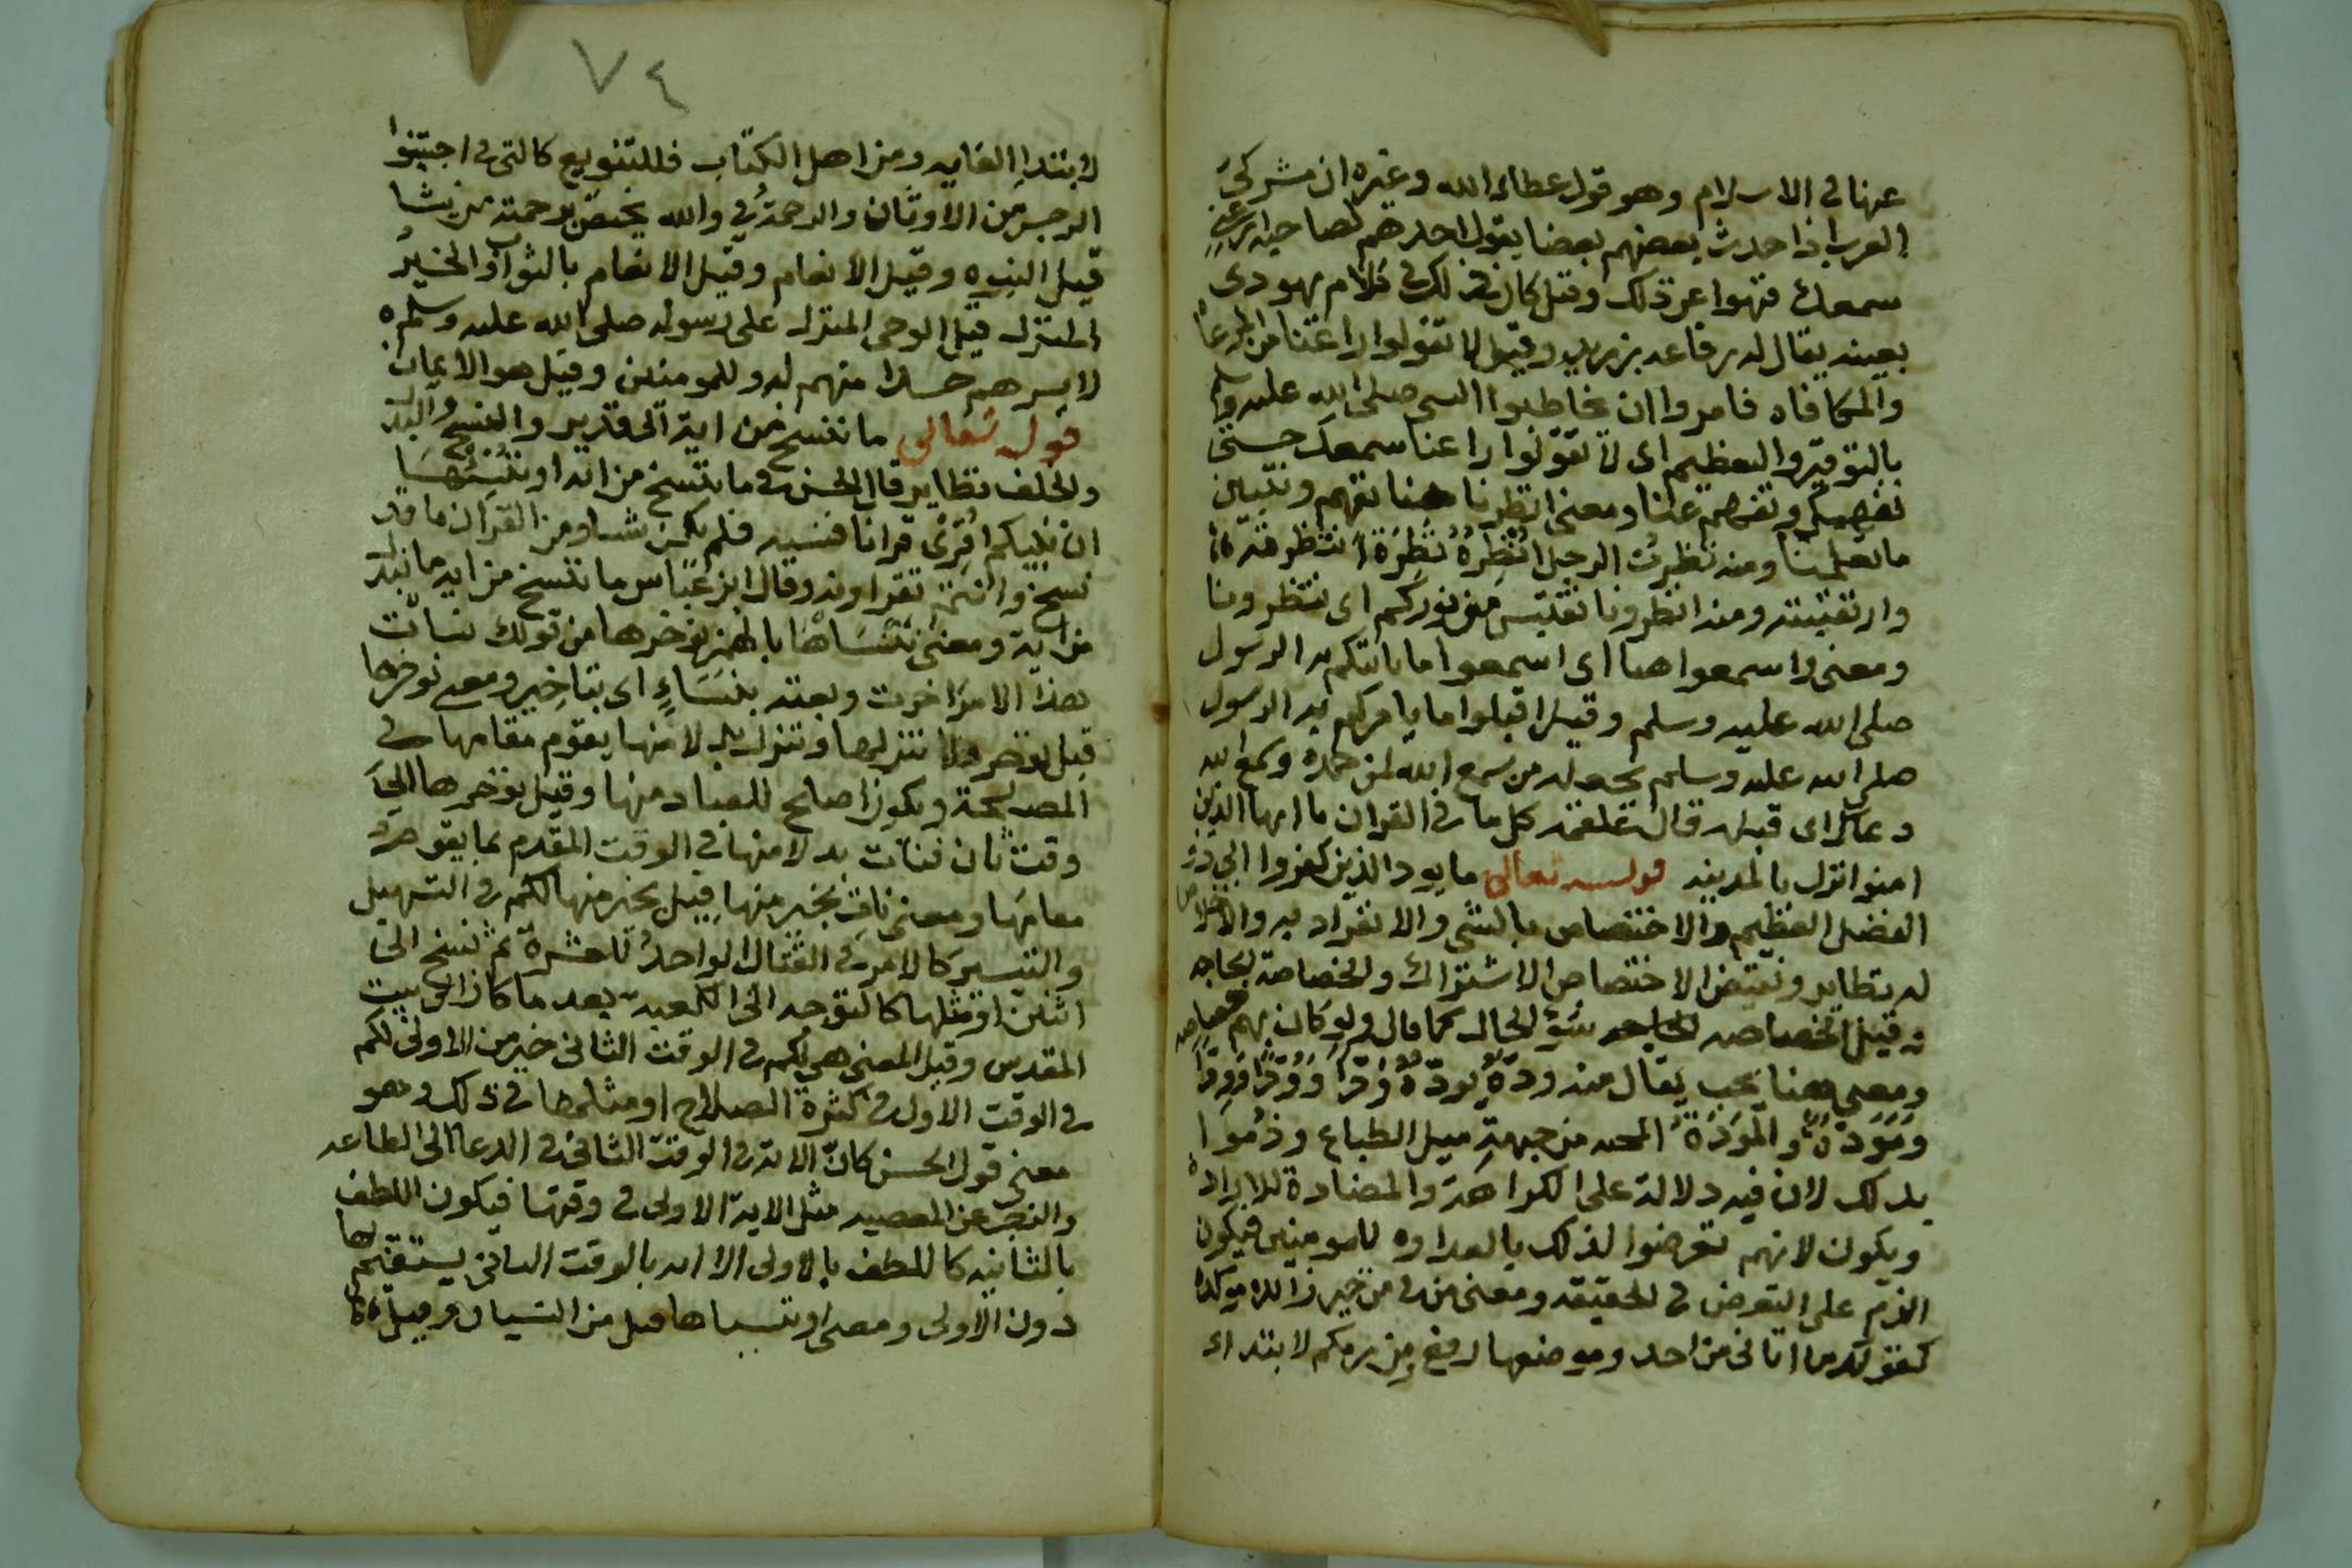 عنها في الاسلام وهو قول عطاء الله وغيره ان مشركي
العرب اذا حدث بعضهم بعضا يقول احدهم لصاحبه ارعني
سمعك فنهوا عن ذلك وقيل كان ذلك في كلام يهودي
بعينه يقال له رفاعه بن زيد وقيل لا تقولوا راعنا من المرعاه
والمكافاه فامروا ان يخاطبوا النبي صلى الله عليه وسلم
بالتوقير والتعظيم اى لا تقولوا راعنا سمعك حتى
نفهمك وتفهم عنا ومعنى انظرنا هنا نفهم ونتبين
ما تعلمنا ومنه نظرت الرجل انظره نظرة انتظرته
وارتقبته ومنه انظرونا نقتبس من نوركم اى انتظرونا
ومعنى واسمعوا هنا اى اسمعوا ما ياتيكم به الرسول
صلى الله عليه وسلم وقيل اقبلوا ما يامركم به الرسول
صلى الله عليه وسلم نحو من سمع الله لمن حمده وسمع الله
دعاك اى قبله قال علقمه كل ما في القران يا ايها الذين
امنوا نزل بالمدينه قوله تعالى ما يود الذين كفروا الى ذو
الفضل العظيم والاختصاص بالشي والانفراد به والاخلاص
له نظاير ونقيض الاختصاص الاشتراك والخصاصة الحاجه
وقيل الخصاصه سوء الحال كما قال ولو كان بهم خصاصه
ومعنى هنا يحب يقال منه ودّه يودّه ودّا وودّا وودّا
ومودّة والمودّة المحبه من جهة ميل الطباع وذموا
بذلك لان فيه دلالة على الكراهة والمضادة للارادة
ويكون لانهم تعرضوا لذلك بالعداوه للمومنين فيكون
الذم على التعرض في الحقيقه ومعنى من في من خير زائده موكده
كقولك ما اتاني من احد وموضعها رفع من ربكم لابتداء
٧٤
لابتداء الغايه ومن اهل الكتاب فللتنويع كالتي في اجتنبوا
الرجس من الاوثان والرحمة في والله يختص برحمته من يشا
قيل النبوه وقيل الانعام وقيل الانعام بالثواب والخير
المنزل قيل الوحي المنزل على رسوله صلى الله عليه وسلم
حسدا منهم له وللمومنين وقيل هو الايمان
قوله تعالى ما ننسخ من اية الى قدير والنسخ والبدل
والخلف نظاير قال الحسن في ما ننسخ من اية او ننسها
ان نبيكم اقرى قرانا فنسيه فلم يكن شيا ومن القران ما قد
نسخ وانتم تقراونه وقال ابن عباس ما ننسخ من ايه ما نبدل
من اية ومعنى ننساها بالهمز نوخرها من قولك نسات
هذا الامر اخرت وبعته بنساءٍ اى بتاخير ومعنى نوخرها
قيل نوخر فلا ننزلها وننزل بدلا منها يقوم مقامها في
المصلحة ويكون اصلح للعباد منها وقيل نوخرها الى
وقت ثان فنات بدلا منها في الوقت المقدم بما يقوم
مقامها ومعنى نات بخير منها قيل بخير منها لكم في التسهيل
والتيسير كالامر في القتال الواحد للعشرة ثم نسخ الى
اثنين او مثلها كالتوجه الى الكعبه بعد ما كان الى بيت
المقدس وقيل المعنى هي لكم في الوقت الثاني خير من الاولى لكم
في الوقت الاول في كثرة الصلاح او مثلها في ذلك وهو
معنى قول الحسن كان الاية في الوقت الثاني في الدعا الى الطاعه
والزجر عن المعصيه مثل الاية الاولى في وقتها فيكون اللطف
بالثانيه كاللطف بالاولى الا انه بالوقت الثاني يستقيم لها
دون الاولى ومعنى او ننساها قيل من النسيان وقيل